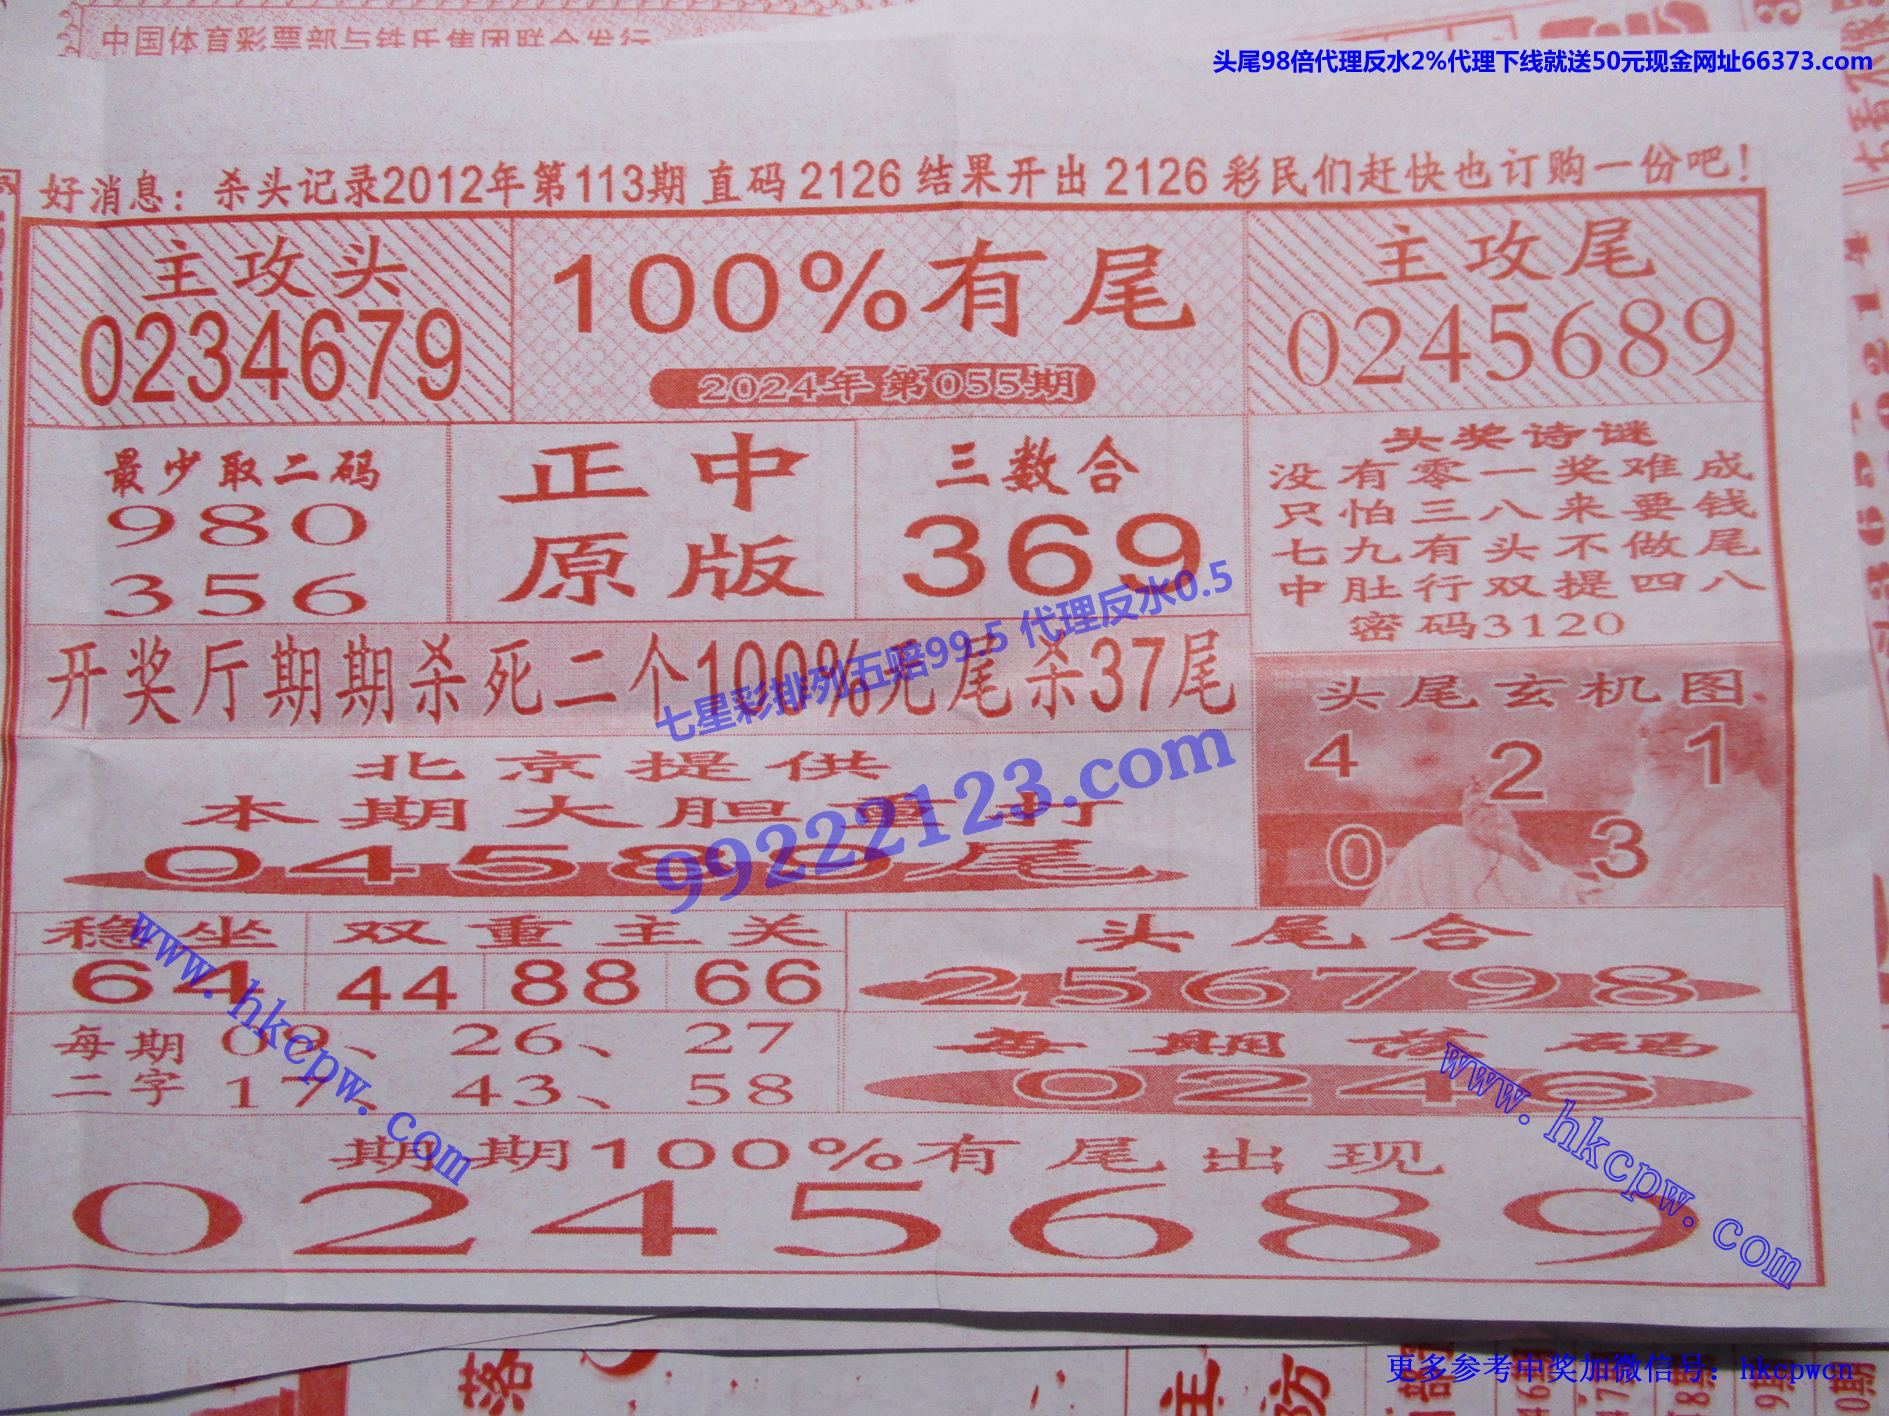 中国体育彩票部与铁氏集团联合发行
头尾98倍代理反水2%代理下线就送50元现金网址66373.com
好消息：杀头记录2012年第113期 直码 2126 结果开出 2126 彩民们赶快也订购一份吧！
主攻头
0234679
100%有尾
2024年第055期
主攻尾
0245689
最少取二码
980
356
正中
原版
三数合
369
头奖诗谜
没有零一奖难成
只怕三八来要钱
七九有头不做尾
中肚行双提四八
密码3120
开奖厅期期杀死二个100%无尾杀37尾
七星彩排列五赔99.5 代理反水0.5
99222123.com
头尾玄机图
4 2 1
0 3
北京提供
本期大胆重打
04589尾
稳坐
64
双重主关
44 88 66
头尾合
256798
每期
二字
26、 27
17、 43、 58
每期落码
0246
www.hkcpw.com
www.hkcpw.com
期期100%有尾出现
0245689
更多参考中奖加微信号：hkcpwcn